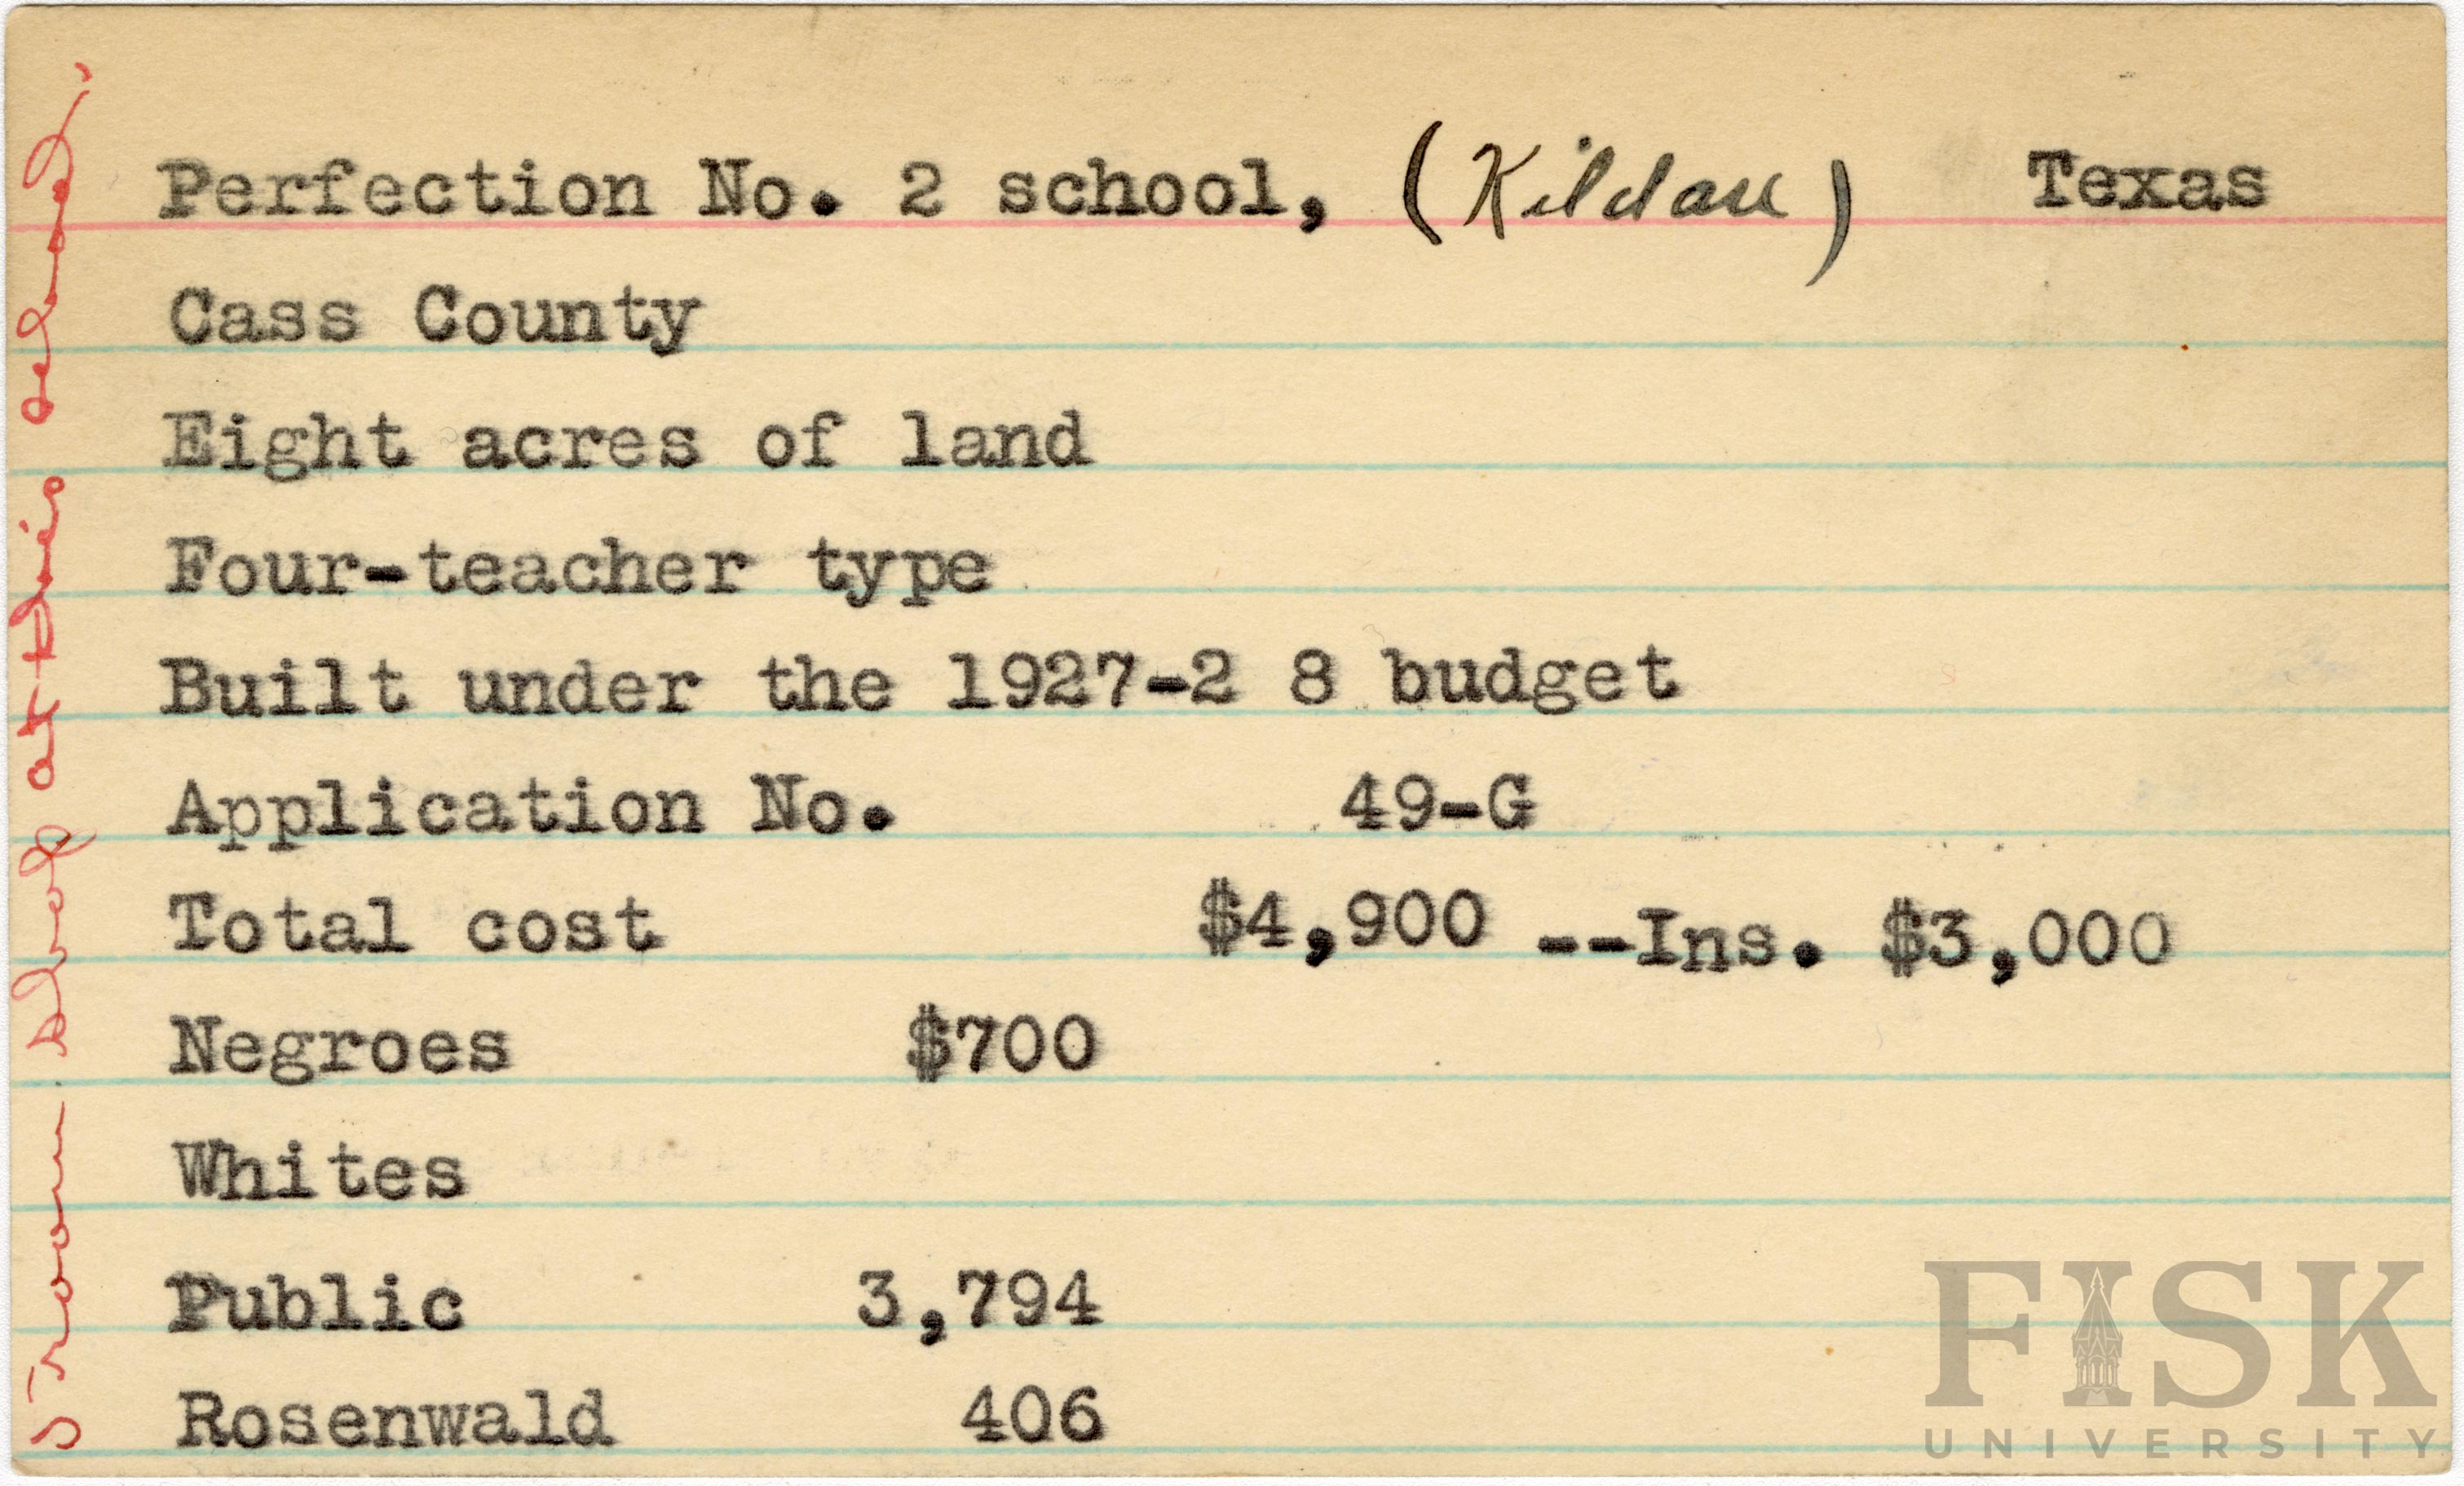 Perfection No. 2 school, (Kildare) Texas
Cass County
Eight acres of land
Four-teacher type
Built under the 1927-2 8 budget
Application No. 49-G
Total cost $4,900 --Ins. $3,000
Negroes $700
Whites
Public 3,794
Rosenwald 406
5 room shop at this school.
FISK
UNIVERSITY